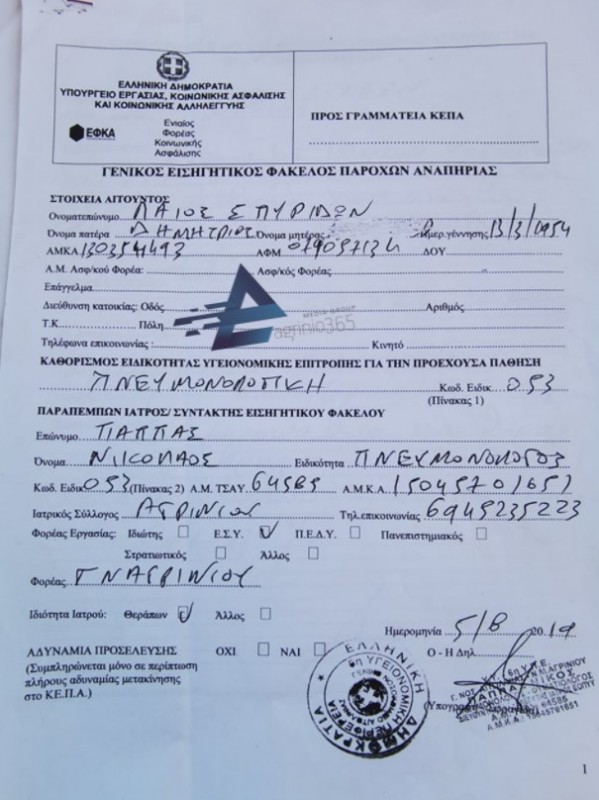 ΕΛΛΗΝΙΚΗ ΔΗΜΟΚΡΑΤΙΑ
ΥΠΟΥΡΓΕΙΟ ΕΡΓΑΣΙΑΣ, ΚΟΙΝΩΝΙΚΗΣ ΑΣΦΑΛΙΣΗΣ
ΚΑΙ ΚΟΙΝΩΝΙΚΗΣ ΑΛΛΗΛΕΓΓΥΗΣ
ΕΦΚΑ
Ενιαίος
Φορέας
Κοινωνικής
Ασφάλισης
ΠΡΟΣ ΓΡΑΜΜΑΤΕΙΑ ΚΕΠΑ
ΓΕΝΙΚΟΣ ΕΙΣΗΓΗΤΙΚΟΣ ΦΑΚΕΛΟΣ ΠΑΡΟΧΩΝ ΑΝΑΠΗΡΙΑΣ
ΣΤΟΙΧΕΙΑ ΑΙΤΟΥΝΤΟΣ
Ονοματεπώνυμο ΛΑΙΟΣ ΣΠΥΡΙΔΩΝ
Όνομα πατέρα ΔΗΜΗΤΡΙΟΣ Όνομα μητέρας Ημερ.γέννησης 13/3/1954
ΑΜΚΑ ΑΦΜ ΔΟΥ
Α.Μ. Ασφ/κού Φορέα: Ασφ/κός Φορέας
Επάγγελμα
Διεύθυνση κατοικίας: Οδός Αριθμός
Τ.Κ Πόλη
agrinio365
Τηλέφωνα επικοινωνίας : Κινητό
ΚΑΘΟΡΙΣΜΟΣ ΕΙΔΙΚΟΤΗΤΑΣ ΥΓΕΙΟΝΟΜΙΚΗΣ ΕΠΙΤΡΟΠΗΣ ΓΙΑ ΤΗΝ ΠΡΟΕΧΟΥΣΑ ΠΑΘΗΣΗ
ΠΝΕΥΜΟΝΟΛΟΓΙΚΗ Κωδ. Ειδικ 053
(Πίνακας 1)
ΠΑΡΑΠΕΜΠΩΝ ΙΑΤΡΟΣ/ ΣΥΝΤΑΚΤΗΣ ΕΙΣΗΓΗΤΙΚΟΥ ΦΑΚΕΛΟΥ
Επώνυμο ΠΑΠΠΑΣ
Όνομα ΝΙΚΟΛΑΟΣ Ειδικότητα ΠΝΕΥΜΟΝΟΛΟΓΟΣ
Κωδ. Ειδικ 053 (Πίνακας 2) Α.Μ. ΤΣΑΥ 64585 Α.Μ.Κ.Α 15045701651
Ιατρικός Σύλλογος ΑΓΡΙΝΙΟΥ Τηλ.επικοινωνίας 6945235223
Φορέας Εργασίας: Ιδιώτης Ε.Σ.Υ. Π.Ε.Δ.Υ. Πανεπιστημιακός
Στρατιωτικός Άλλος
Φορέας ΓΝ ΑΓΡΙΝΙΟΥ
Ιδιότητα Ιατρού: Θεράπων Άλλος
Ημερομηνία 5/8 2019
ΑΔΥΝΑΜΙΑ ΠΡΟΣΕΛΕΥΣΗΣ ΟΧΙ ΝΑΙ Ο - Η Δηλ
(Συμπληρώνεται μόνο σε περίπτωση
πλήρους αδυναμίας μετακίνησης
στο ΚΕ.Π.Α.)
ΕΛΛΗΝΙΚΗ ΔΗΜΟΚΡΑΤΙΑ
6η ΥΓΕΙΟΝΟΜΙΚΗ ΠΕΡΙΦΕΡΕΙΑ
ΠΑΠΠΑΣ ΝΙΚΟΣ
1